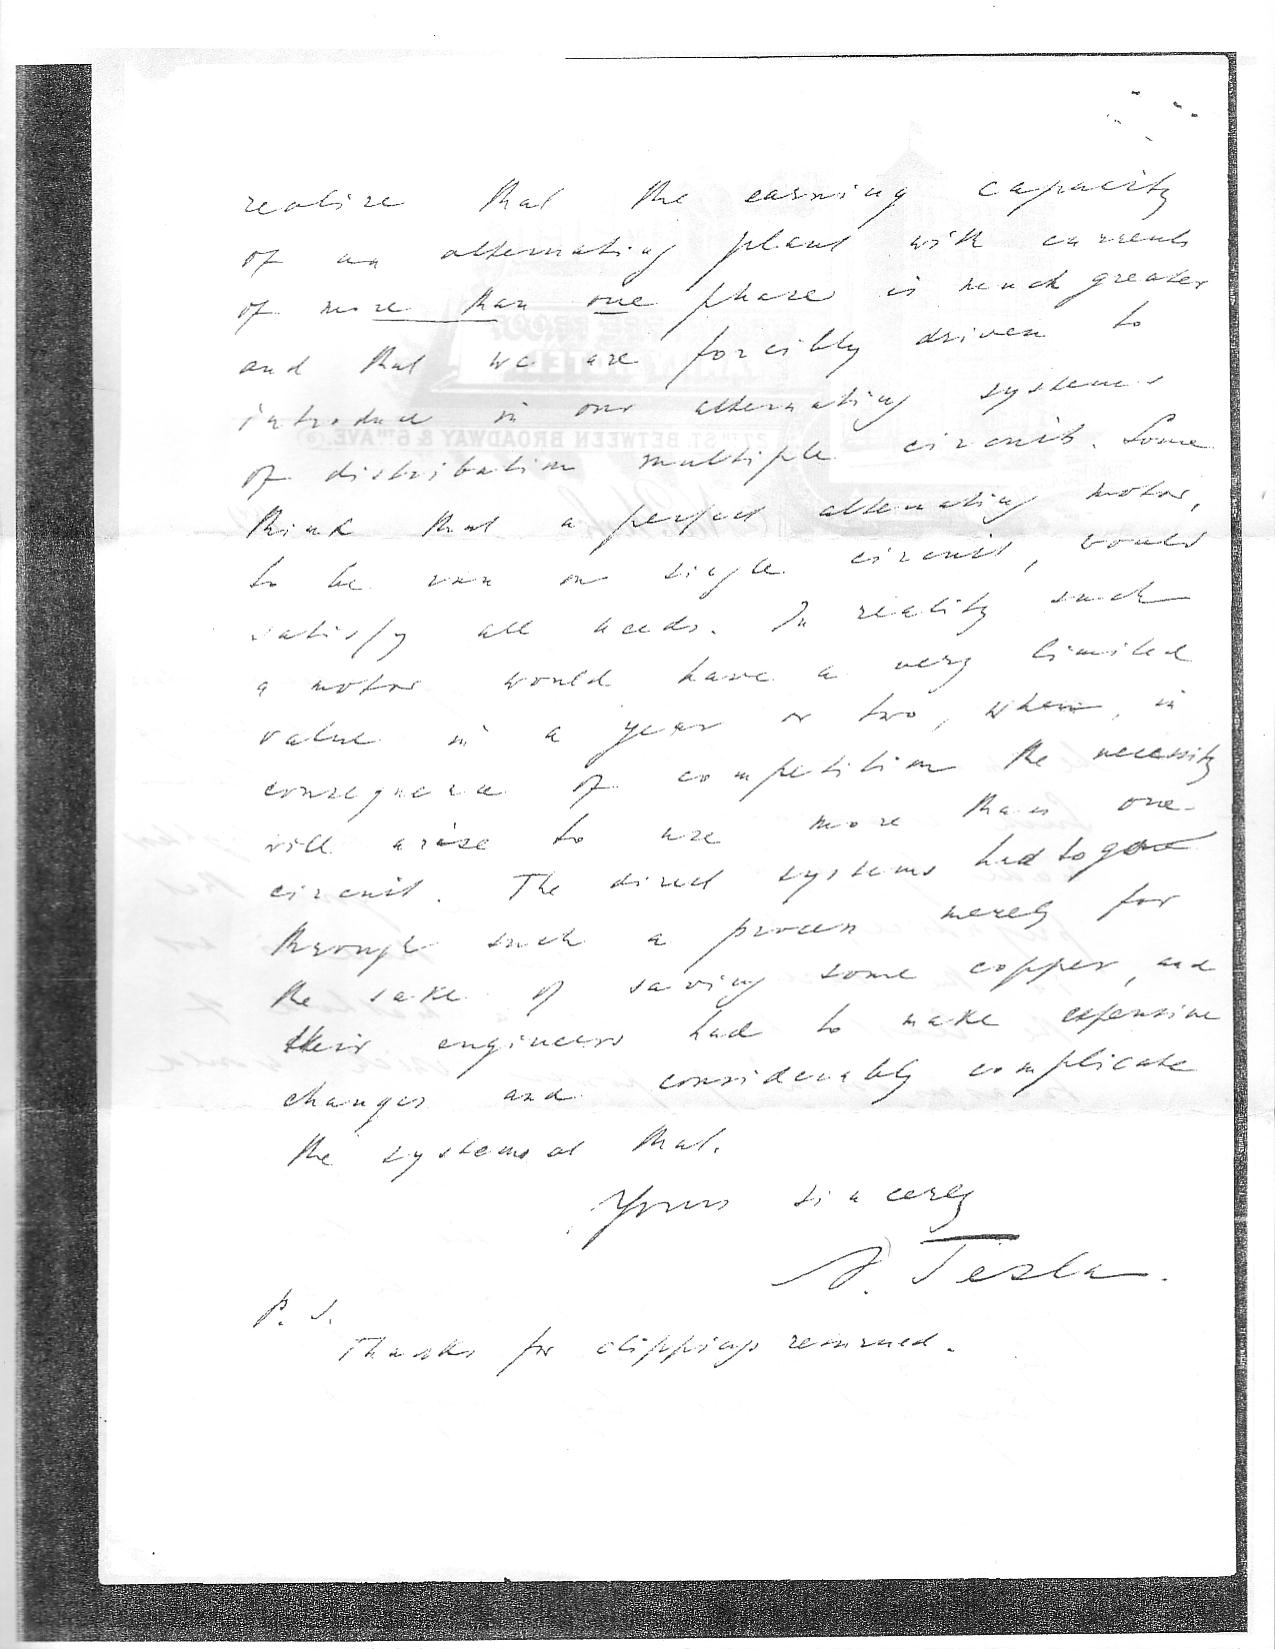 realize that the earning capacity
of an alternating plant with currents
of more than one phase is much greater
and that we are forcibly driven to
introduce in our alternating systems
of distribution multiple circuits. Some
think that a perfect alternating motor,
to be run on single circuit, would
satisfy all needs. In reality such
a motor would have a very limited
value in a year or two, when, in
consequence of competition the necessity
will arise to use more than one
circuit. The direct systems had to go
through such a process merely for
the sake of saving some copper, and
their engineers had to make expensive
changes and considerably complicate
the systems at that.
Yours sincerely
N. Tesla.
P. S.
Thanks for clippings returned.
FIRE PROOF
27TH ST. BETWEEN BROADWAY & 6TH AVE.